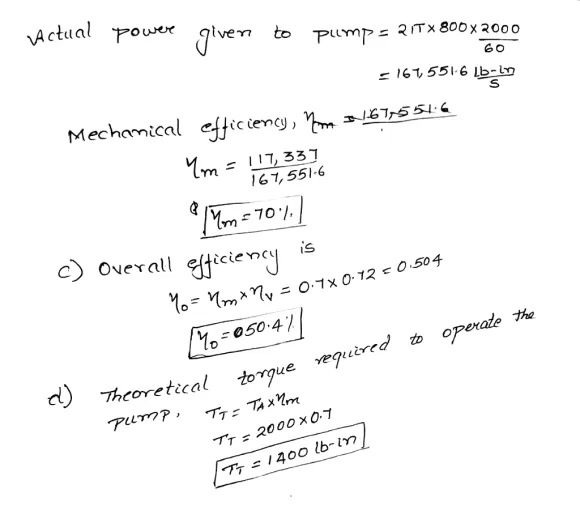 Actual power given to pump = 2π × 800 × 2000 / 60
= 167,551.6 lb-in / s
Mechanical efficiency, ηm = 167,551.6
ηm = 117,337 / 167,551.6
ηm = 70 %.
c) Overall efficiency is
ηo = ηm × ηv = 0.7 × 0.72 = 0.504
ηo = 50.4 %
d) Theoretical torque required to operate the
pump, TT = TA × ηm
TT = 2000 × 0.7
TT = 1400 lb-in